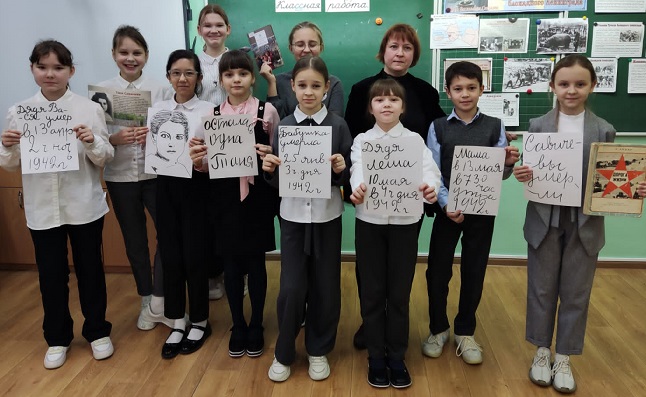 Классная работа
Дядя Ва-
ся умер
в 13 апр
2 ч ноч
1942 г
остала
одна
Таня
Бабушка
умерла
25 янв
3 ч дня
1942 г
Дядя
Леша
10 мая
в 4 ч дня
1942 г
Мама
в 13 мая
в 7 30
час
утра
1942 г
Савиче-
вы
умер-
ли